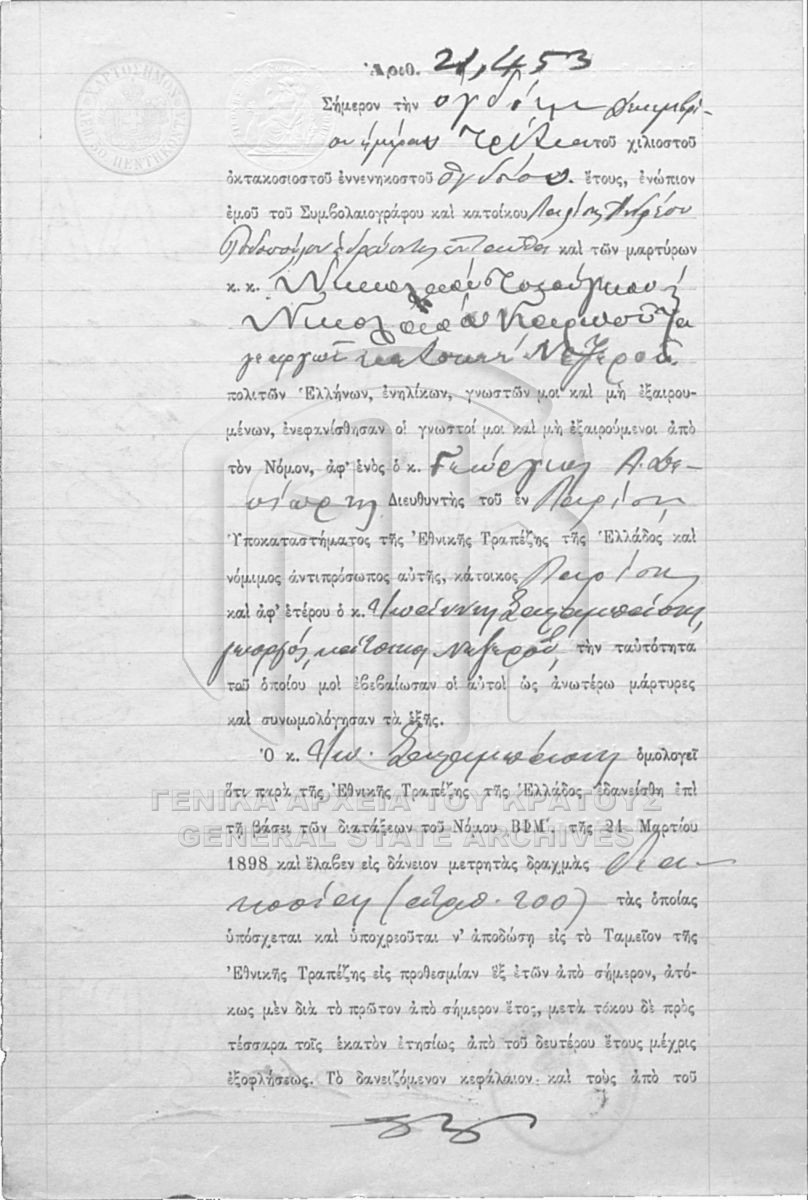 Ἀριθ. 21,453
Σήμερον τὴν ὀγδόην Δεκεμβρί-
ου ἡμέραν Τρίτην τοῦ χιλιοστοῦ
ὀκτακοσιοστοῦ ἐννενηκοστοῦ ὀγδόου ἔτους, ἐνώπιον
ἐμοῦ τοῦ Συμβολαιογράφου καὶ κατοίκου Λαρίσης Ἀνδρέου
Ῥοδοπούλου ἑδρεύοντος ἐνταῦθα καὶ τῶν μαρτύρων
κ. κ. Νικολάου
Νικολάου
γεωργοί κάτοικοι Νεζεροῦ
πολιτῶν Ἑλλήνων, ἐνηλίκων, γνωστῶν μοι καὶ μὴ ἐξαιρου-
μένων, ἐνεφανίσθησαν οἱ γνωστοί μοι καὶ μὴ ἐξαιρούμενοι ἀπὸ
τὸν Νόμον, ἀφ' ἑνὸς ὁ κ. Γεώργιος
Διευθυντὴς τοῦ ἐν Λαρίσῃ
Ὑποκαταστήματος τῆς Ἐθνικῆς Τραπέζης τῆς Ἑλλάδος καὶ
νόμιμος ἀντιπρόσωπος αὐτῆς, κάτοικος Λαρίσης
καὶ ἀφ' ἑτέρου ὁ κ. Ἰωάννης
γεωργός, κάτοικος Νεζεροῦ, τὴν ταὐτότητα
τοῦ ὁποίου μοὶ ἐβεβαίωσαν οἱ αὐτοὶ ὡς ἀνωτέρω μάρτυρες
καὶ συνωμολόγησαν τὰ ἑξῆς.
Ὁ κ. Ἰω. ὁμολογεῖ
ὅτι παρὰ τῆς Ἐθνικῆς Τραπέζης τῆς Ἑλλάδος ἐδανείσθη ἐπὶ
ΓΕΝΙΚΑ ΑΡΧΕΙΑ ΤΟΥ ΚΡΑΤΟΥΣ
τῇ βάσει τῶν διατάξεων τοῦ Νόμου ΒΦΜʹ. τῆς 21 Μαρτίου
GENERAL STATE ARCHIVES
1898 καὶ ἔλαβεν εἰς δάνειον μετρητὰς δραχμὰς δια-
κοσίας (ἀριθ. 200) τὰς ὁποίας
ὑπόσχεται καὶ ὑποχρεοῦται ν' ἀποδώσῃ εἰς τὸ Ταμεῖον τῆς
Ἐθνικῆς Τραπέζης εἰς προθεσμίαν ἓξ ἐτῶν ἀπὸ σήμερον, ἀτό-
κως μὲν διὰ τὸ πρῶτον ἀπὸ σήμερον ἔτος, μετὰ τόκου δὲ πρὸς
τέσσαρα τοῖς ἑκατὸν ἐτησίως ἀπὸ τοῦ δευτέρου ἔτους μέχρις
ἐξοφλήσεως. Τὸ δανειζόμενον κεφάλαιον καὶ τοὺς ἀπὸ τοῦ